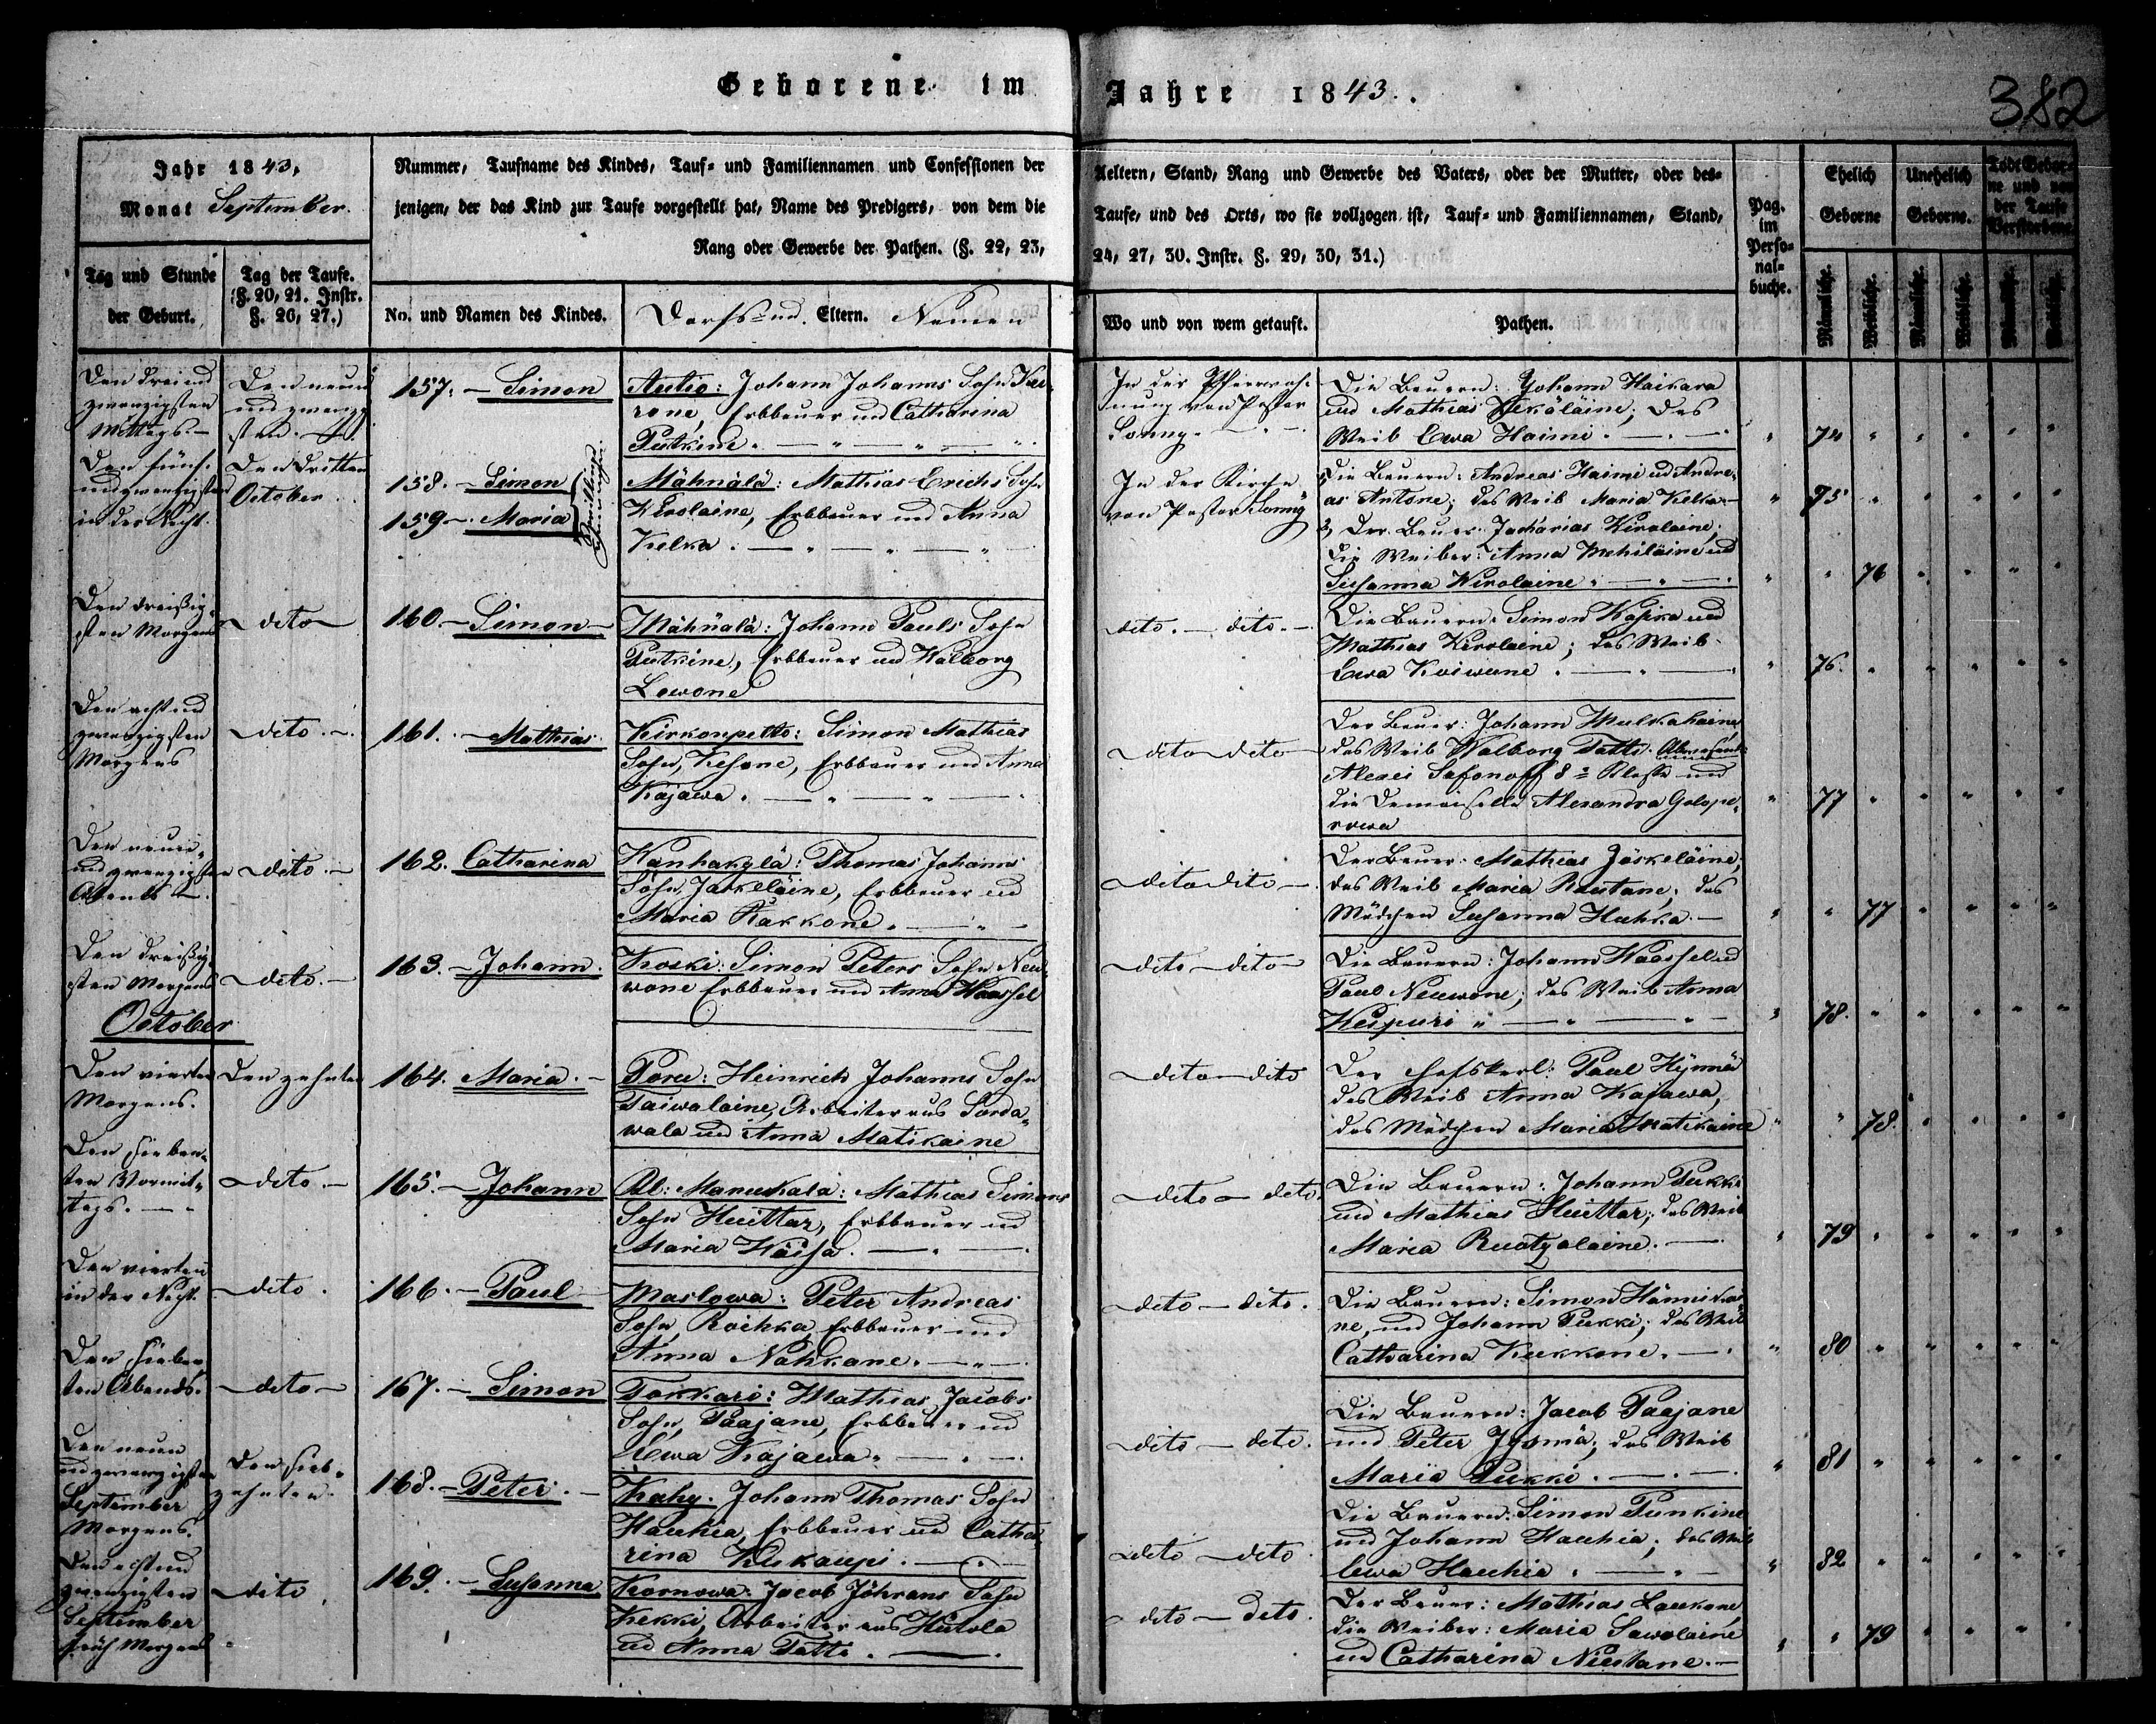 Geborene im Jahre 1843.
382
Jahr 1843,
Monat September.
Tag und Stunde
der Geburt.
Tag der Taufe.
(§. 20, 21. Instr.
§. 26, 27.)
Nummer, Taufname des Kindes, Tauf- und Familiennamen und Confessionen der
jenigen, der das Kind zur Taufe vorgestellt hat, Name des Predigers, von dem die
Rang oder Gewerbe der Pathen. (§. 22, 23,
No. und Namen des Kindes.
Dorfs und Eltern. Namen
Aeltern, Stand, Rang und Gewerbe des Vaters, oder der Mutter, oder des-
Taufe, und des Orts, wo sie vollzogen ist, Tauf- und Familiennamen, Stand,
24, 27, 30. Instr. §. 29, 30, 31.)
Wo und von wem getauft.
Pathen.
Pag.
im
Perso-
nal-
buche.
Ehelich
Geborne
Unehelich
Geborne.
Todt Gebor-
ne und vor
der Taufe
Verstorbene.
Männliche.
Weibliche.
Männliche.
Weibliche.
Männliche.
Weibliche.
Den drei und
zwanzigsten
Mittags.
Den neun
und zwanzig
sten.
157. Simon
Autio: Johann Johanns Sohn Ku-
rone, Erbbauer und Catharina
Putkine.
In der Pfarrwoh-
nung von Pastor
Sonny.
Die Bauern: Johann Haikara
und Mathias Ikäläine; das
Weib Ewa Haimi.
74
Den fünf-
undzwanzigsten
in der Nacht.
Den dritten
October
158. Simon
159. Maria
Zwillinge
Mähnälä: Mathias Erichs Sohn
Kirolaine, Erbbauer und Anna
Kelka.
In der Kirche
von Pastor Sonny
Die Bauern: Andreas Haimi und Andre-
as Antone; das Weib Maria Kelka
2, Der Bauer Zacharias Kirolaine;
die Weiber: Anna Mehiläine und
Susanna Kirolaine.
75
76
Den dreißig-
sten Morgens
dito
160. Simon
Mähnälä: Johann Pauls Sohn
Putkine, Erbbauer und Walborg
Lewone
dito. dito.
Die Bauern: Simon Kajka und
Mathias Kirolaine; das Weib
Ewa Koiwune.
76.
Den acht und
zwanzigsten
Morgens
dito.
161. Mathias
Kirkonpelto: Simon Mathias
Sohn, Kesone, Erbbauer und Anna
Kajawa.
dito dito
Der Bauer: Johann Mulkahaine
das Weib Walborg Tatti.
Alexei Safonoff 8: Klasse und
die Demoiselle Alexandra Golope-
rowa
77
Den neun-
und zwanzigsten
Abends
dito.
162. Catharina
Wanhakylä: Thomas Johanns
Sohn, Jäskeläine, Erbbauer und
Maria Kakkone.
dito dito
Der Bauer: Mathias Jäskeläine;
das Weib Maria Rautane; das
Mädchen Susanna Huhka.
77
Den dreißig-
sten Morgens
dito.
163. Johann.
Koski: Simon Peters Sohn Neu-
wone Erbbauer und Anna Waassel
dito dito
Die Bauern: Johann Waassel und
Paul Neuwone; das Weib Anna
Kuipuri
78.
October
Den vierten
Morgens.
Den zehnten
164. Maria.
Poru: Heinrich Johanns Sohn
Taiwalaine, Arbeiter aus Sorda-
wala und Anna Matikaine
dito dito
Der Hofskerl: Paul Hynnä
das Weib Anna Kajawa,
das Mädchen Maria Matikaine
78.
Den sieben-
ten Vormit-
tags.
dito.
165. Johann
Kl: Manukala: Mathias Simons
Sohn Huittar, Erbbauer und
Maria Wäisä.
dito dito.
Die Bauern: Johann Pukki
und Mathias Huittar; das Weib
Maria Ruotzalaine.
79
Den vierten
in der Nacht.
dito.
166. Paul
Maslowa: Peter Andreas
Sohn, Roihka, Erbbauer und
Anna Nahkane.
dito dito.
Die Bauern: Simon Hännikäi-
ne, und Johann Pukki; das Weib
Catharina Kukkone.
80
Den sieben-
ten Abends.
dito
167. Simon
Tokkari: Mathias Jacobs
Sohn, Paajane, Erbbauer und
Ewa Kajawa.
dito dito.
Die Bauern: Jacob Paajane
und Peter das Weib
Maria Pukki.
81
Den neun
und zwanzigsten
September
Morgens.
Den sieb-
zehnten.
168. Peter.
Kahy. Johann Thomas Sohn
Haukia, Erbbauer und Catha-
rina Kukaupi.
dito dito.
Die Bauern: Simon Punkine
und Johann Haukia; das Weib
Ewa Haukia.
82
Den acht und
zwanzigsten
September
früh Morgens
dito
169. Susanna
Kornowa: Jacob Jöhrans Sohn
Kekki, Arbeiter aus Hiitola
und Anna Tatti.
dito dito.
Der Bauer: Mathias Laukone
die Weiber: Maria Sawolaine
und Catharina Niustane.
79